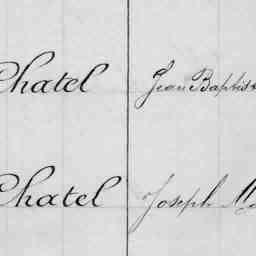 Chatel Jean Baptist
Chatel Joseph M